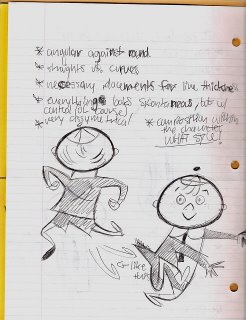 * angular against round
* straights vs. curves
* necessary placements for line thickness
* everything looks spontaneous, but w/
control (of course)
* very asymmetrical
* composition within
the character
WHAT STYLE!
like
this